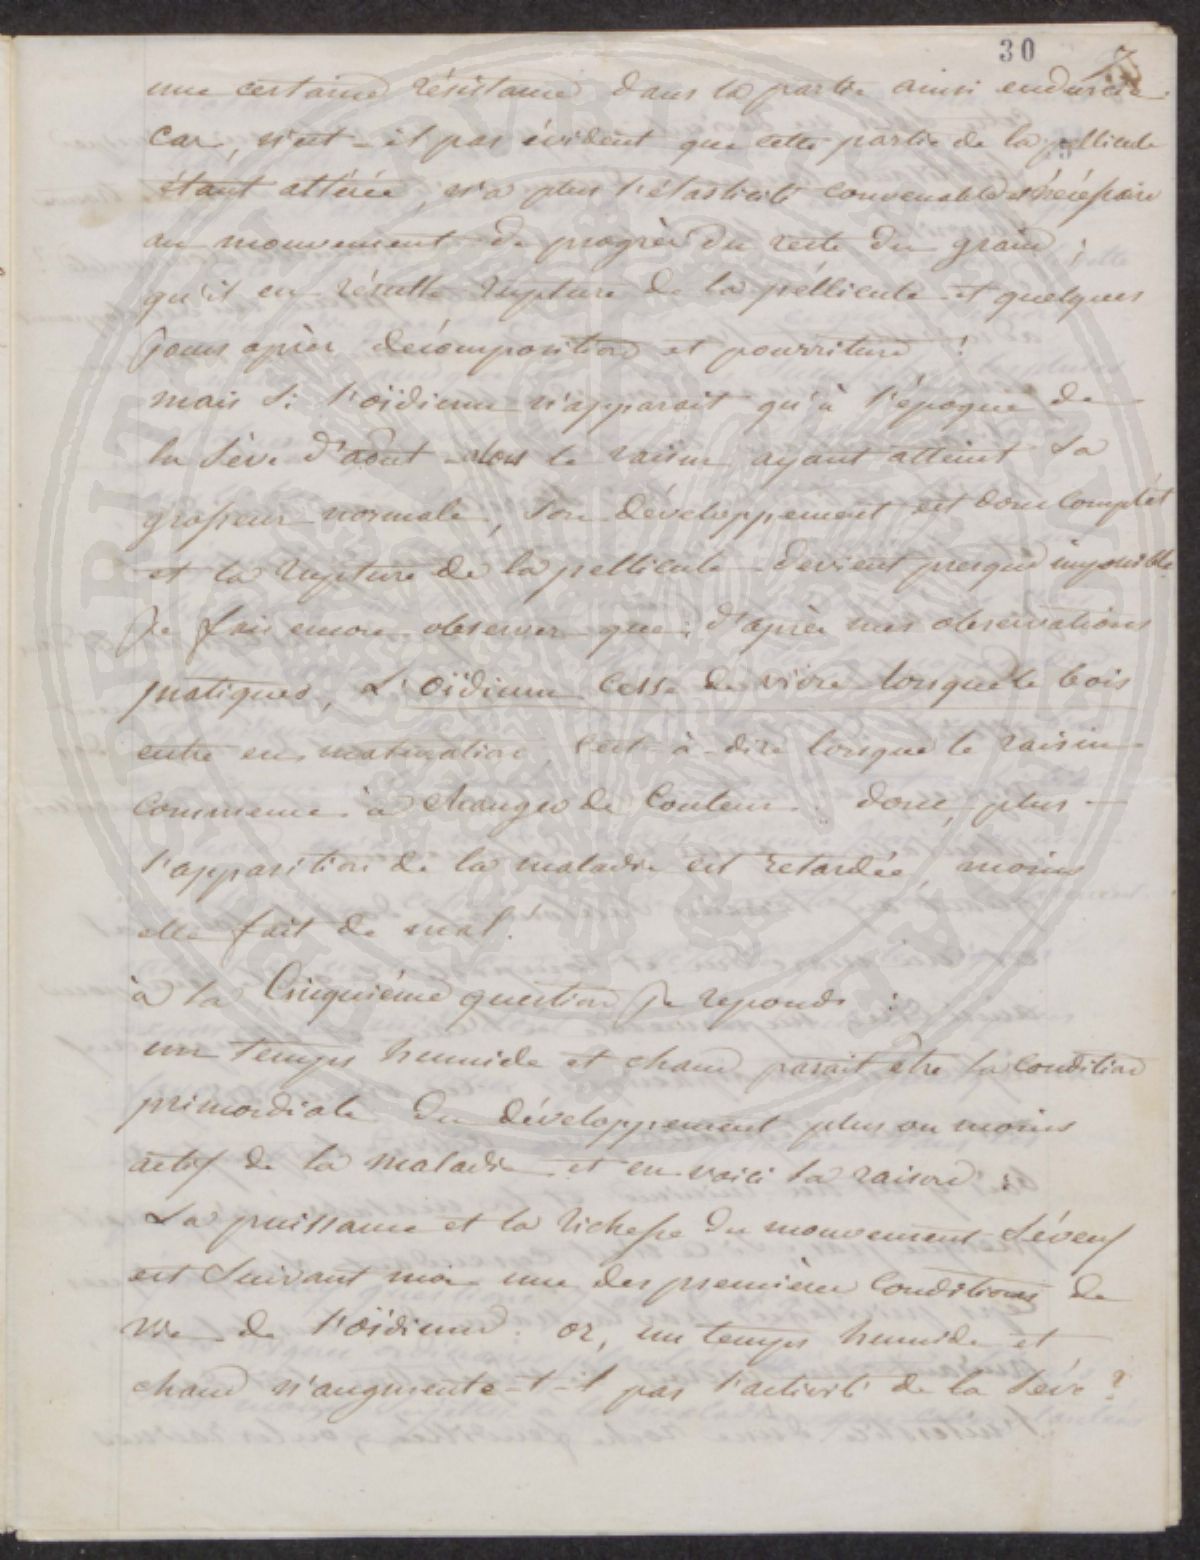 30 7
une certaine résistance dans la partie ainsi endurcie.
Car, n'est-il pas évident que cette partie de la pellicule
étant altérée, n'a plus l'élasticité convenable et nécessaire
au mouvement de progrès du reste du grain ;
qu'il en résulte rupture de la péllicule et quelques
jours après décomposition et pourriture !
mais si l'oïdium n'apparait qu'à l'époque de
la sève d'août alors le raisin ayant atteint sa
grosseur normale, son développement est donc complèt
et la rupture de la pellicule devient presque impossible.
Je fais encore observer que, d'après mes observations
pratiques, L'oïdium cesse de vivre lorsque le bois
entre en maturation, c'est-à-dire lorsque le raisin
commence à changer de couleur. donc, plus
l'apparition de la maladie est retardée, moins
elle fait de mal !
à la Cinquième question je reponds :
un temps humide et chaud parait être la condition
primordiale du développement plus ou moins
actif de la maladie et en voici la raison :
La puissance et la richesse du mouvement séveux
est suivant moi une des premières conditions de
vie de l'oïdium. or, un temps humide et
chaud n'augmente-t-il pas l'activité de la sève ?